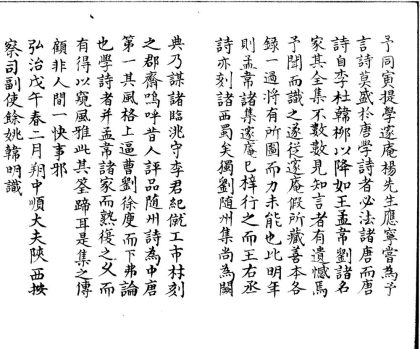 予同寅提學邃庵楊先生應寧嘗為予
言詩莫盛於唐學詩者必法諸唐而唐
詩自李杜韓柳以降如王孟韋劉諸名
家其全集不數數見知言者有遺憾焉
予聞而識之遂從邃庵假所藏善本各
錄一過將有所圖而力未能也比明年
則孟韋諸集邃庵已梓行之而王右丞
詩亦刻諸西蜀矣獨劉隨州集尚為闕
典乃謀諸臨洮守李君紀僦工市材刻
之郡齋嗚呼昔人評品隨州詩為中唐
第一其風格上逼曹劉徐庾而下弗論
也學詩者并孟韋諸家而熟復之又而
有得以窺風雅此其筌蹄耳是集之傳
顧非人間一快事邪
弘治戊午春二月朔中順大夫陝西按
察司副使餘姚韓明識